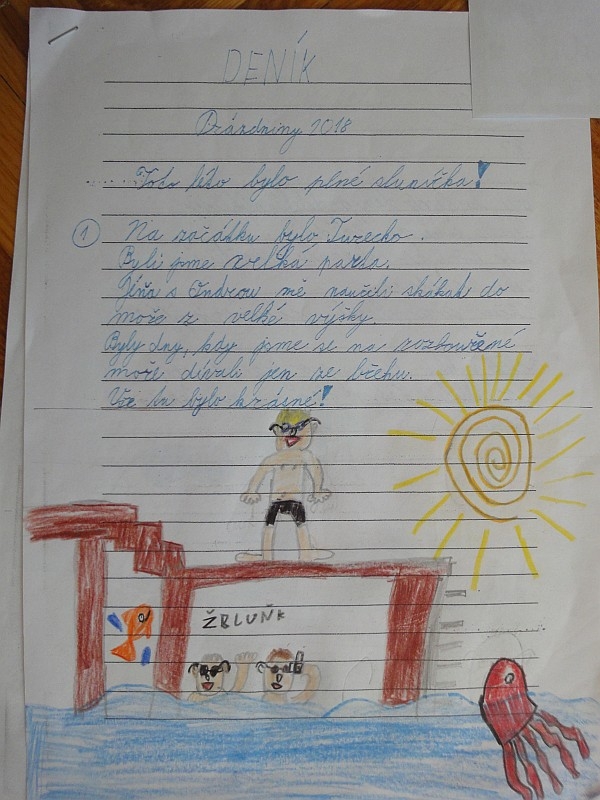 DENÍK
Prázdniny 2018
Toto léto bylo plné sluníčka!
1 Na začátku bylo Turecko.
Byli jsme velká parta.
Jíňa s Indrou mě naučili skákat do
moře z velké výšky.
Byly dny, kdy jsme se na rozbouřené
moře dívali jen ze břehu.
Vše tu bylo krásné!
ŽBLUŇK